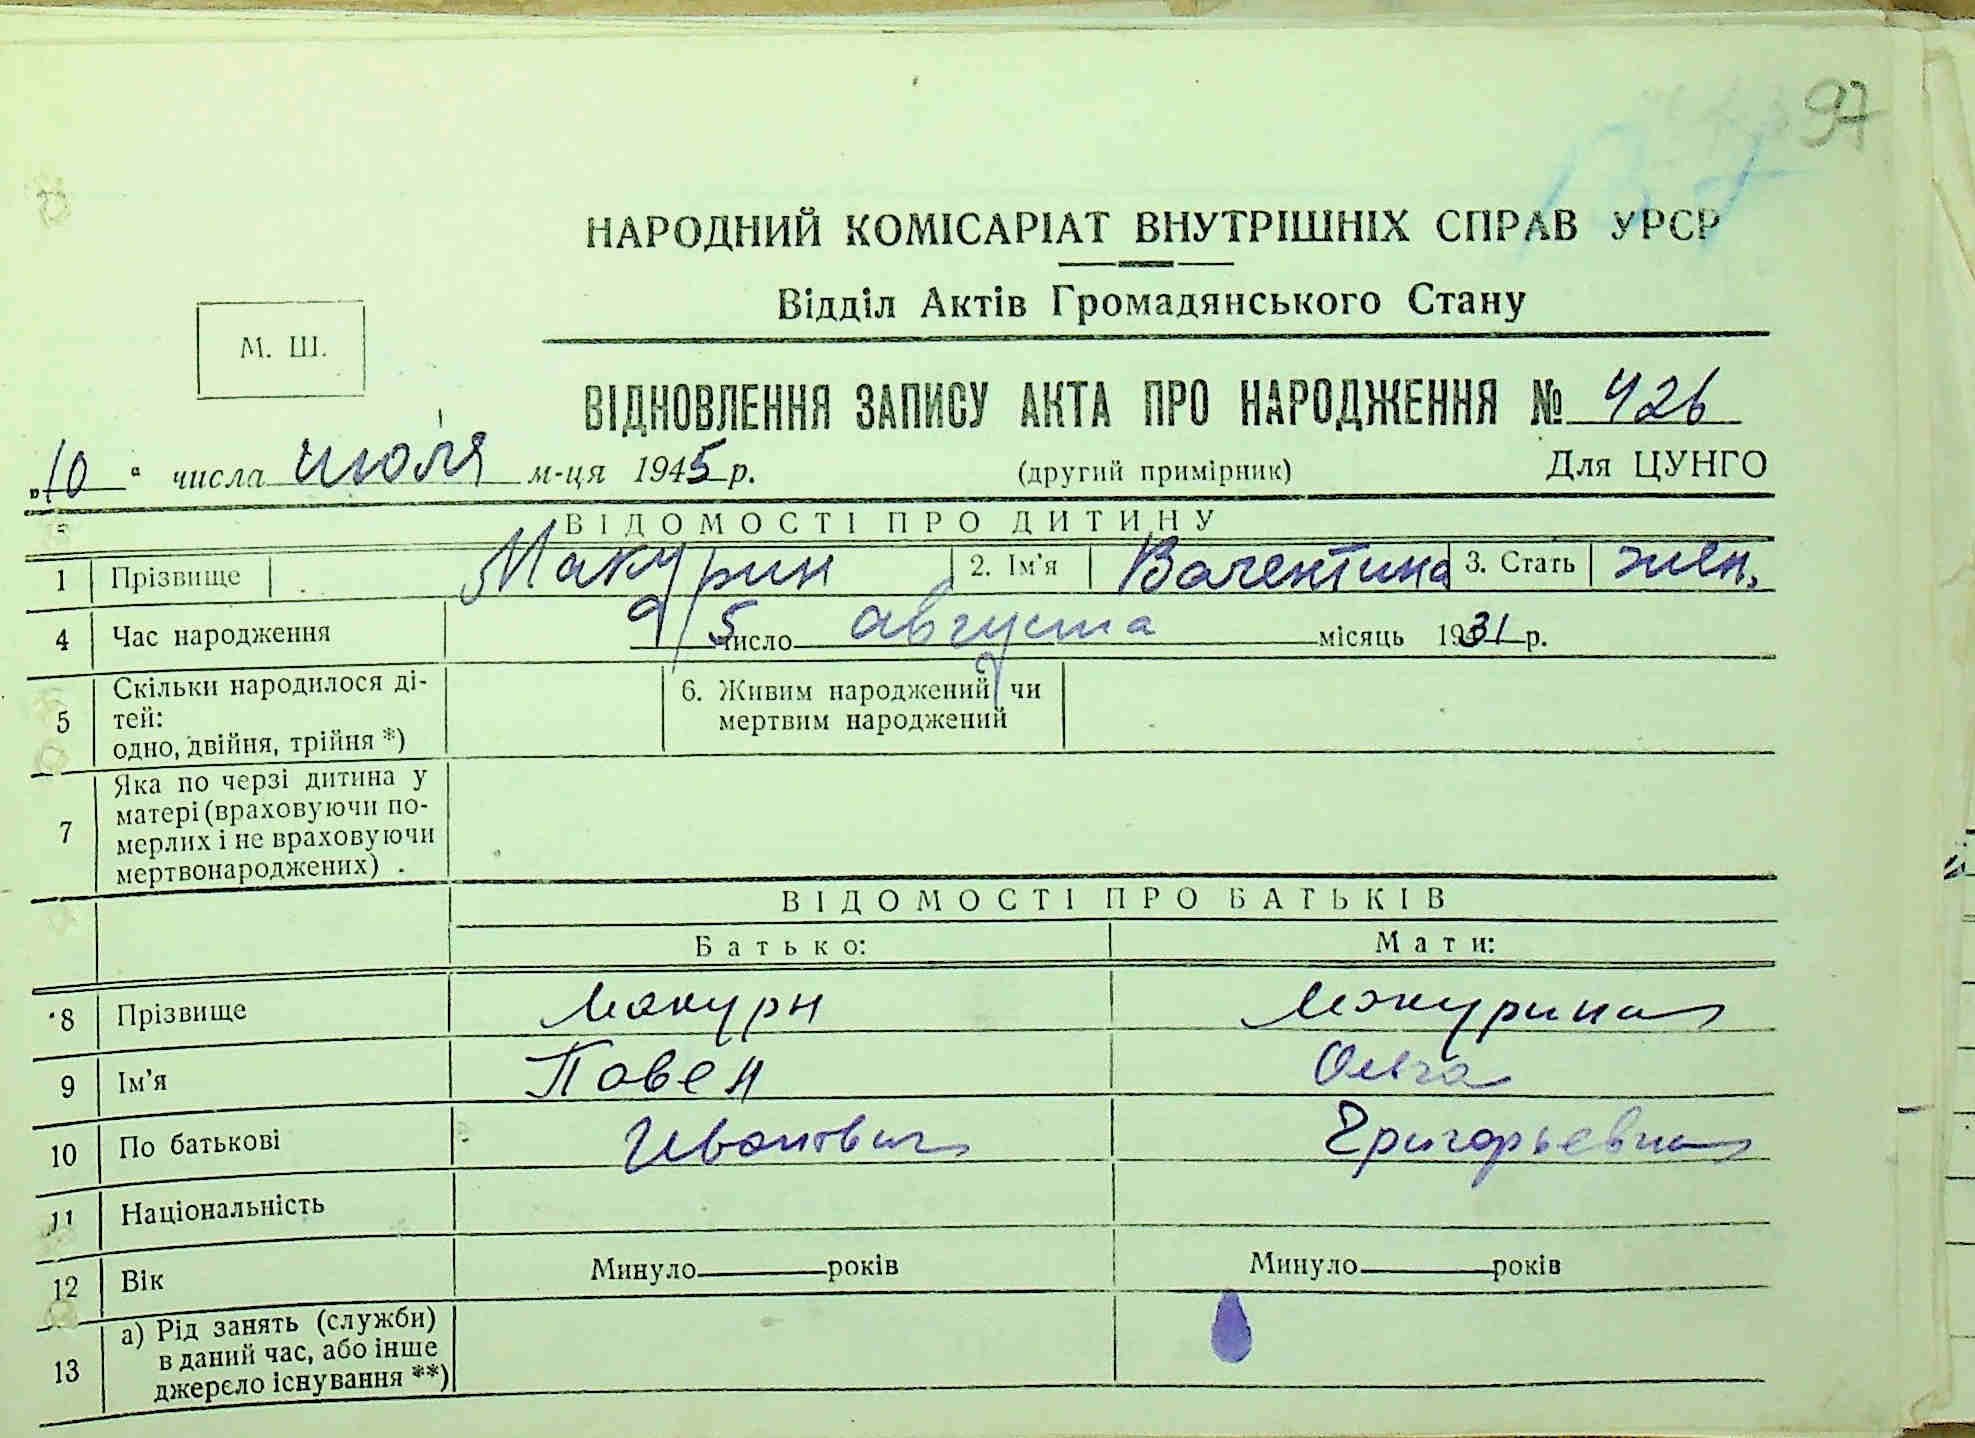 97
НАРОДНИЙ КОМІСАРІАТ ВНУТРІШНІХ СПРАВ УРСР
Відділ Актів Громадянського Стану
М. Ш.
ВІДНОВЛЕННЯ ЗАПИСУ АКТА ПРО НАРОДЖЕННЯ № 426
„10" числа июля м-ця 1945 р. (другий примірник) Для ЦУНГО
ВІДОМОСТІ ПРО ДИТИНУ
1 Прізвище Макурин 2. Ім'я Валентина 3. Стать жен.
4 Час народження 5 число августа місяць 1931 р.
5 Скільки народилося ді-
тей:
одно, двійня, трійня *)
6. Живим народжений чи
мертвим народжений
7 Яка по черзі дитина у
матері (враховуючи по-
мерлих і не враховуючи
мертвонароджених) .
ВІДОМОСТІ ПРО БАТЬКІВ
Батько: Мати:
8 Прізвище Макурн Макурина
9 Ім'я Павел Ольга
10 По батькові Иванович Григорьевна
11 Національність
12 Вік Минуло років Минуло років
13 а) Рід занять (служби)
в даний час, або інше
джерело існування **)